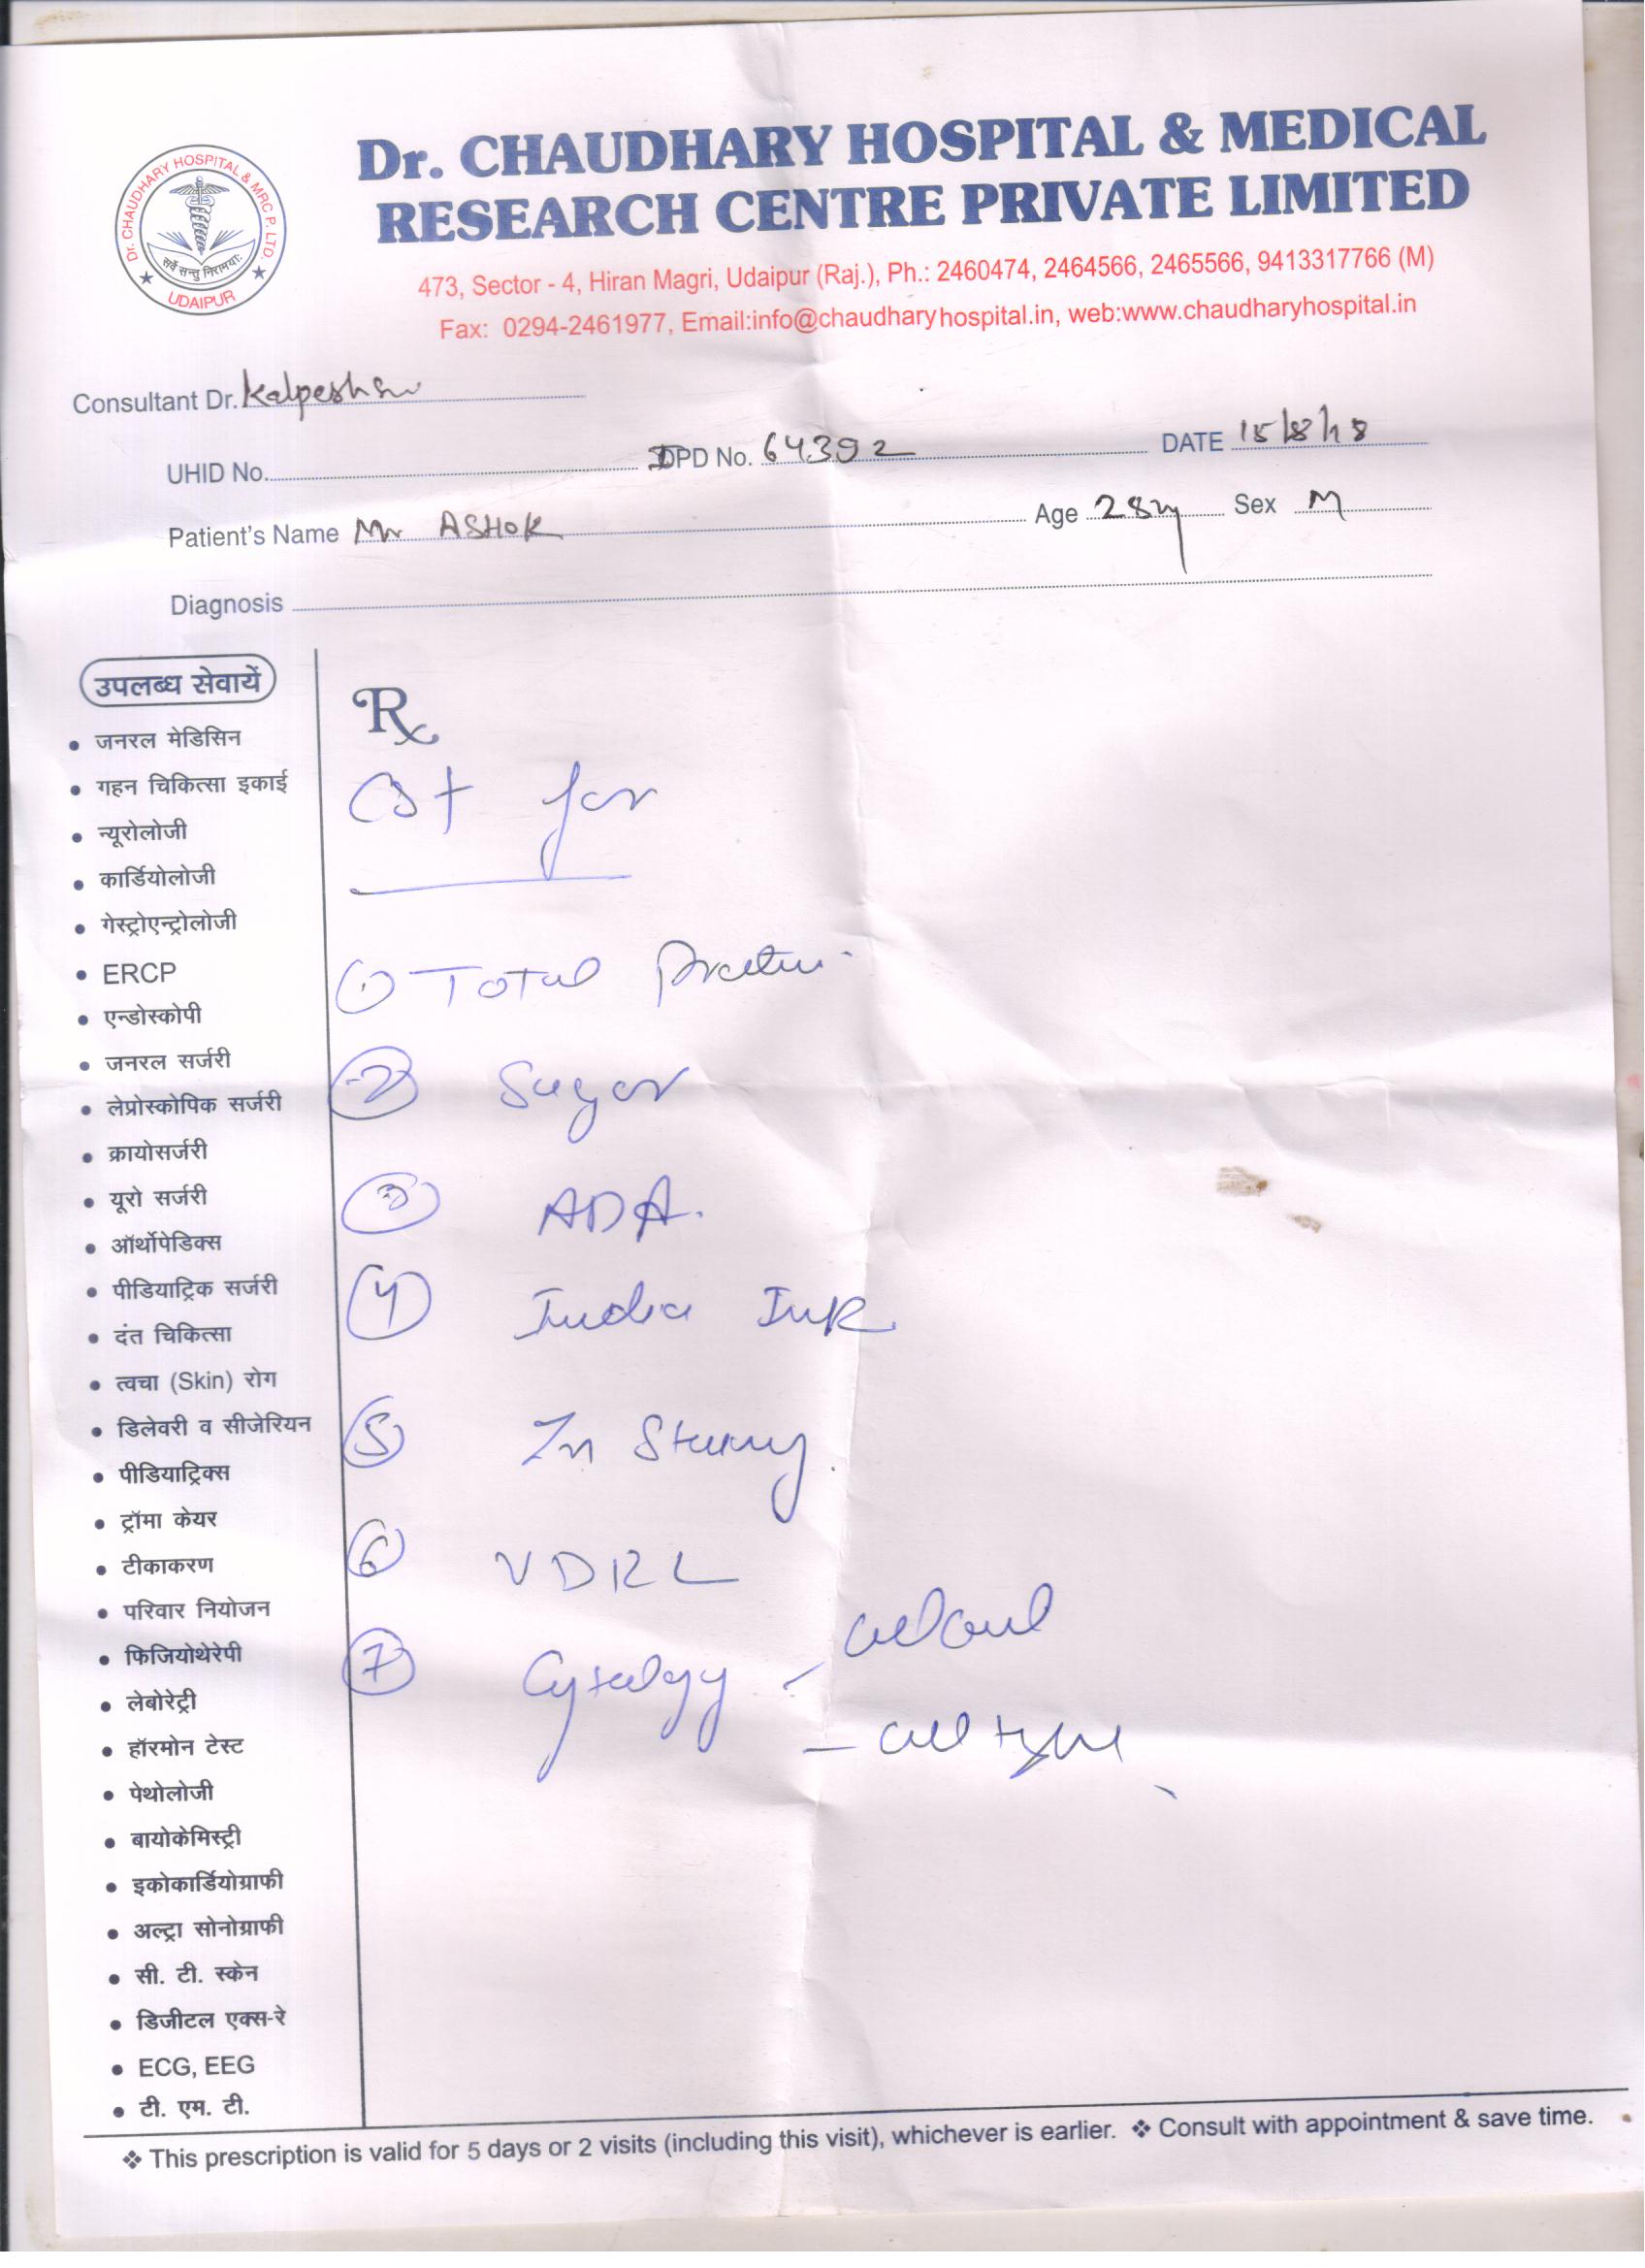 Dr. CHAUDHARY HOSPITAL & MEDICAL
RESEARCH CENTRE PRIVATE LIMITED
473, Sector - 4, Hiran Magri, Udaipur (Raj.), Ph.: 2460474, 2464566, 2465566, 9413317766 (M)
Fax: 0294-2461977, Email:info@chaudharyhospital.in, web:www.chaudharyhospital.in
Dr. CHAUDHARY HOSPITAL & MRC P. LTD.
सर्वे सन्तु निरामयाः
UDAIPUR
Consultant Dr. Kalpesh
UHID No. IPD No. 64392 DATE 15/8/18
Patient's Name Mr ASHOK Age 28y Sex M
Diagnosis
उपलब्ध सेवायें
• जनरल मेडिसिन
• गहन चिकित्सा इकाई
• न्यूरोलोजी
• कार्डियोलोजी
• गेस्ट्रोएन्ट्रोलोजी
• ERCP
• एन्डोस्कोपी
• जनरल सर्जरी
• लेप्रोस्कोपिक सर्जरी
• क्रायोसर्जरी
• यूरो सर्जरी
• ऑर्थोपेडिक्स
• पीडियाट्रिक सर्जरी
• दंत चिकित्सा
• त्वचा (Skin) रोग
• डिलेवरी व सीजेरियन
• पीडियाट्रिक्स
• ट्रॉमा केयर
• टीकाकरण
• परिवार नियोजन
• फिजियोथेरेपी
• लेबोरेट्री
• हॉरमोन टेस्ट
• पेथोलोजी
• बायोकेमिस्ट्री
• इकोकार्डियोग्राफी
• अल्ट्रा सोनोग्राफी
• सी. टी. स्केन
• डिजीटल एक्स-रे
• ECG, EEG
• टी. एम. टी.
Rx
CSF for
(1) Total Protein
(2) Sugar
(3) ADA.
(4) India Ink
(5) Zn
(6) VDRL
(7) Cytology -
- cell type
❖ This prescription is valid for 5 days or 2 visits (including this visit), whichever is earlier. ❖ Consult with appointment & save time.